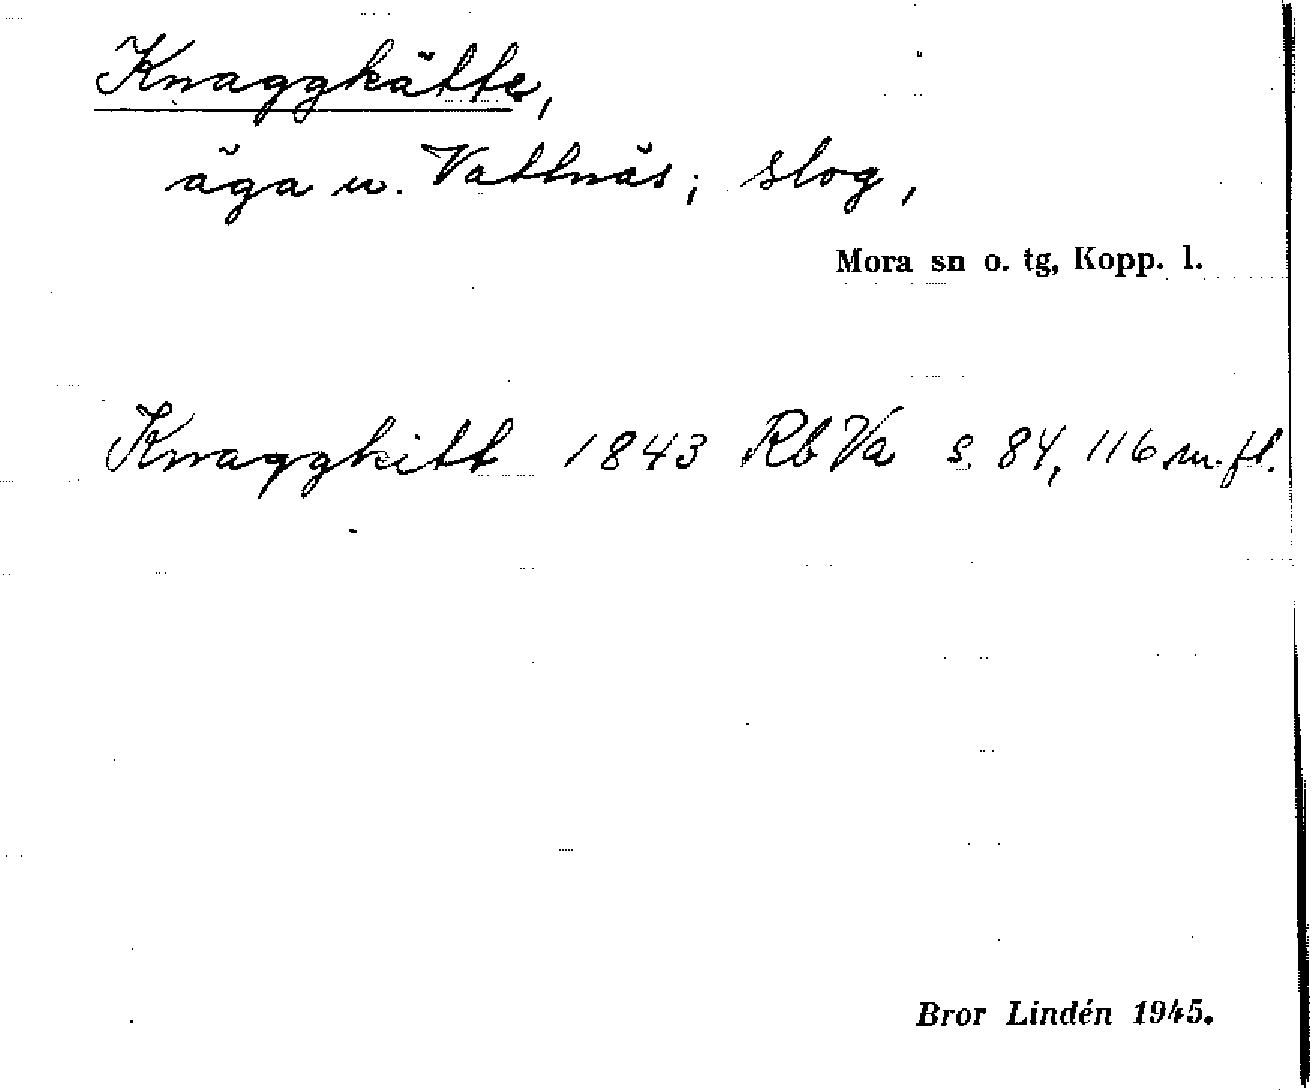 Knaggkätte,
äga u. Vattnäs; slog,
Mora sn o. tg, Kopp. l.
Knaggkitt 1843 Rb Va s. 84, 116 m. fl.
Bror Lindén 1945.